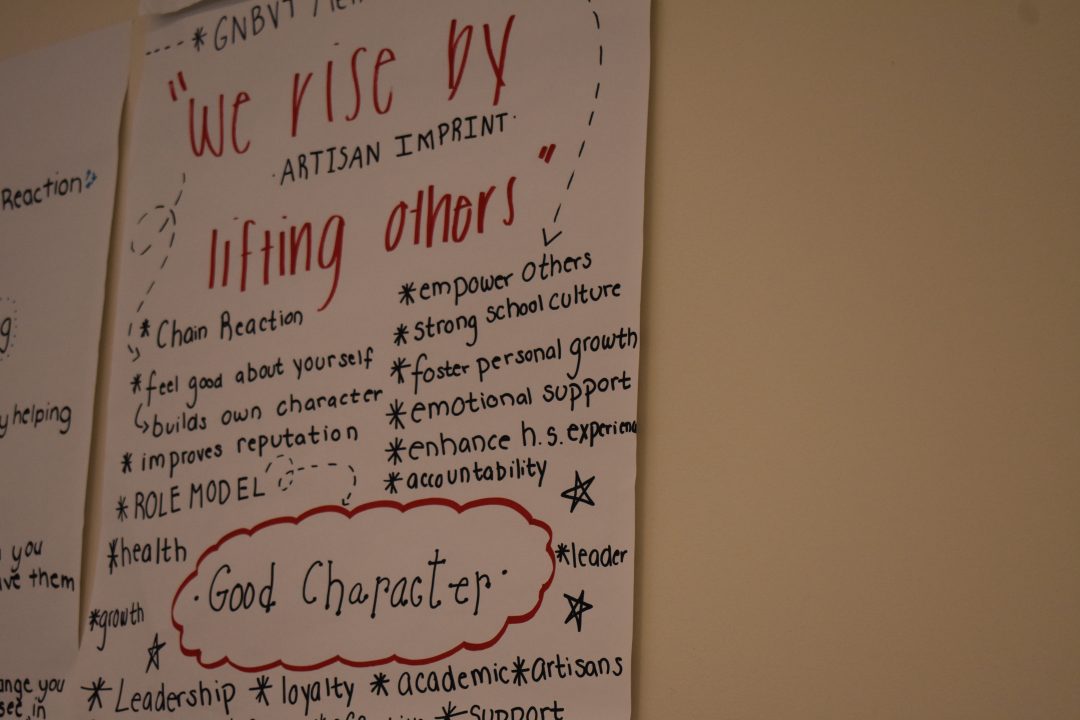 Reaction
y helping
you
ve them
ange you
see in
* GNBVT
"we rise by
· ARTISAN IMPRINT ·
lifting others"
* Chain Reaction
* feel good about yourself
↳ builds own character
* improves reputation
* ROLE MODEL
* empower others
* strong school culture
* foster personal growth
* emotional support
* enhance h.s. experienc
* accountability
* health
* growth
· Good Character ·
* leader
* Leadership * loyalty * academic * artisans
* support